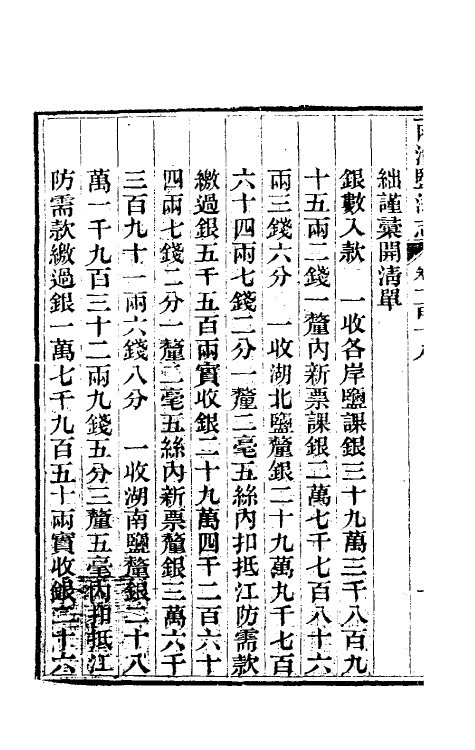 絀謹彚開清單
銀數入款　一收各岸鹽課銀三十九萬三千八百九
十五兩二錢一釐內新票課銀二萬七千七百八十六
兩三錢六分　一收湖北鹽釐銀二十九萬九千七百
六十四兩七錢二分一釐二毫五絲內扣抵江防需款
繳過銀五千五百兩實收銀二十九萬四千二百六十
四兩七錢二分一釐二毫五絲內新票釐銀三萬六千
三百九十一兩六錢八分　一收湖南鹽釐銀二十八
萬一千九百三十二兩九錢五分三釐五毫內扣抵江
防需款繳過銀一萬七千九百五十兩實收銀二十六